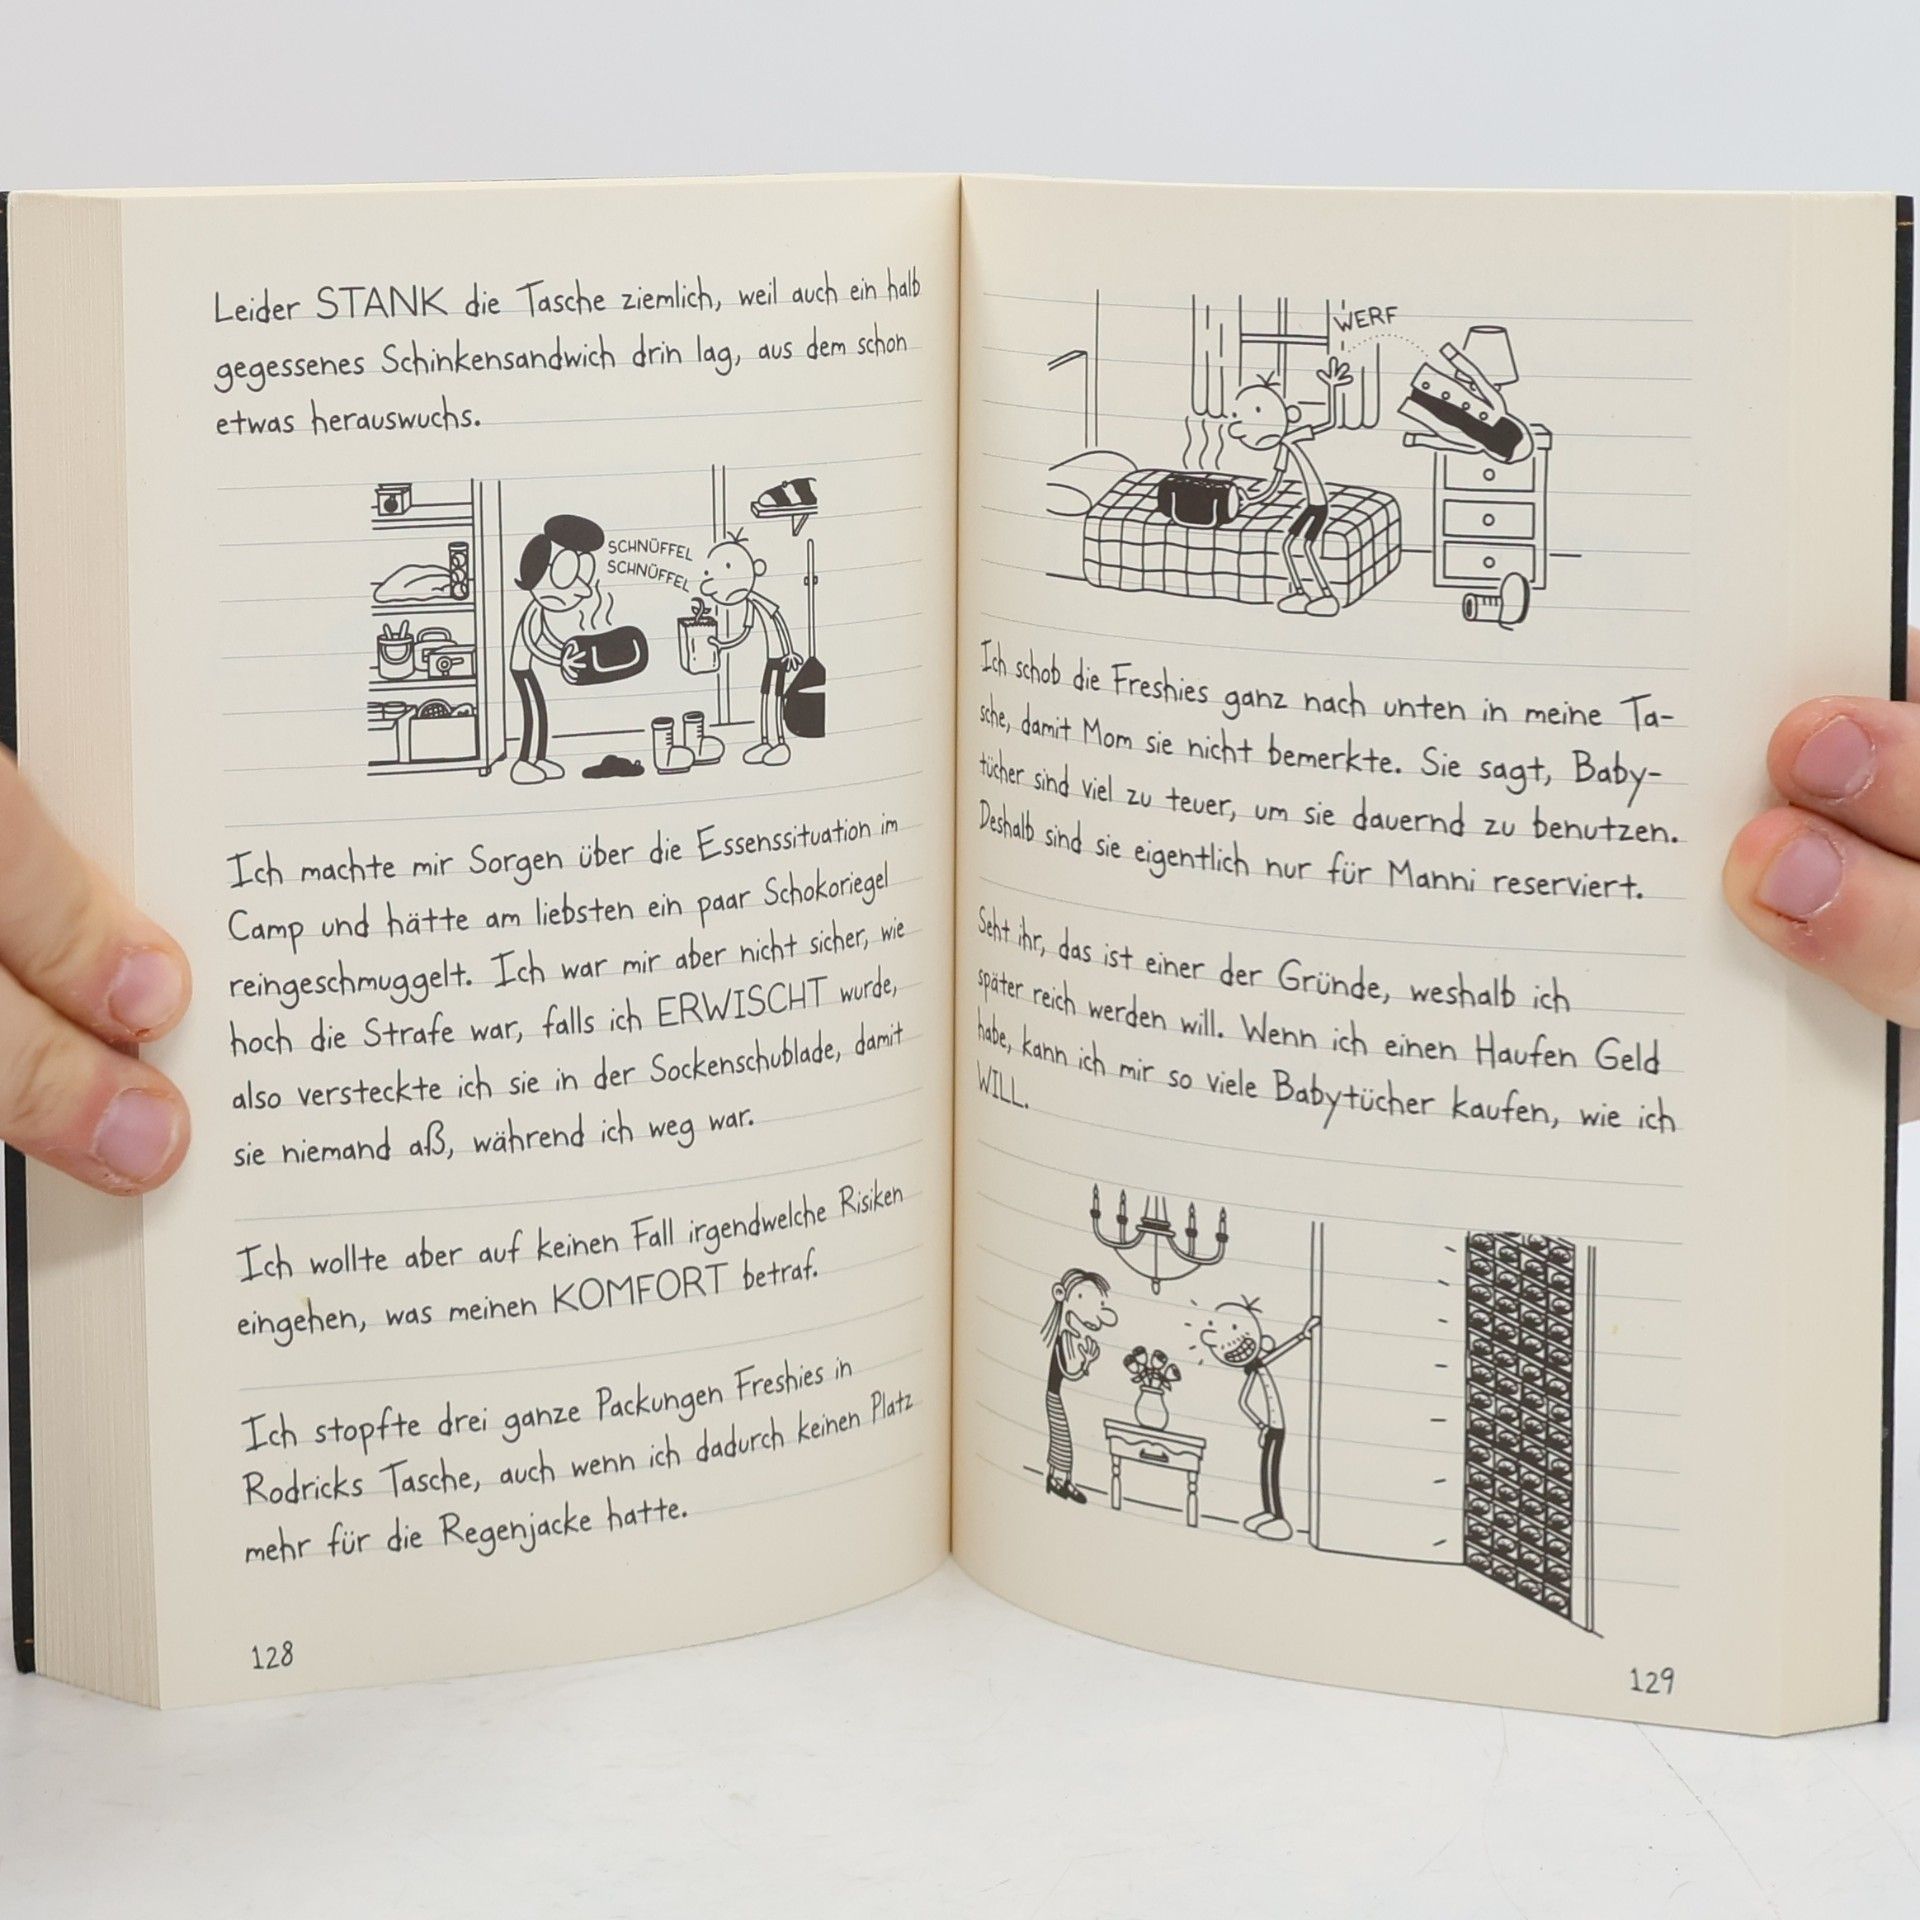 Leider STANK die Tasche ziemlich, weil auch ein halb
gegessenes Schinkensandwich drin lag, aus dem schon
etwas herauswuchs.
SCHNÜFFEL
SCHNÜFFEL
Ich machte mir Sorgen über die Essenssituation im
Camp und hätte am liebsten ein paar Schokoriegel
reingeschmuggelt. Ich war mir aber nicht sicher, wie
hoch die Strafe war, falls ich ERWISCHT wurde,
also versteckte ich sie in der Sockenschublade, damit
sie niemand aß, während ich weg war.
Ich wollte aber auf keinen Fall irgendwelche Risiken
eingehen, was meinen KOMFORT betraf.
Ich stopfte drei ganze Packungen Freshies in
Rodricks Tasche, auch wenn ich dadurch keinen Platz
mehr für die Regenjacke hatte.
128
WERF
Ich schob die Freshies ganz nach unten in meine Ta-
sche, damit Mom sie nicht bemerkte. Sie sagt, Baby-
tücher sind viel zu teuer, um sie dauernd zu benutzen.
Deshalb sind sie eigentlich nur für Manni reserviert.
Seht ihr, das ist einer der Gründe, weshalb ich
später reich werden will. Wenn ich einen Haufen Geld
habe, kann ich mir so viele Babytücher kaufen, wie ich
WILL.
129